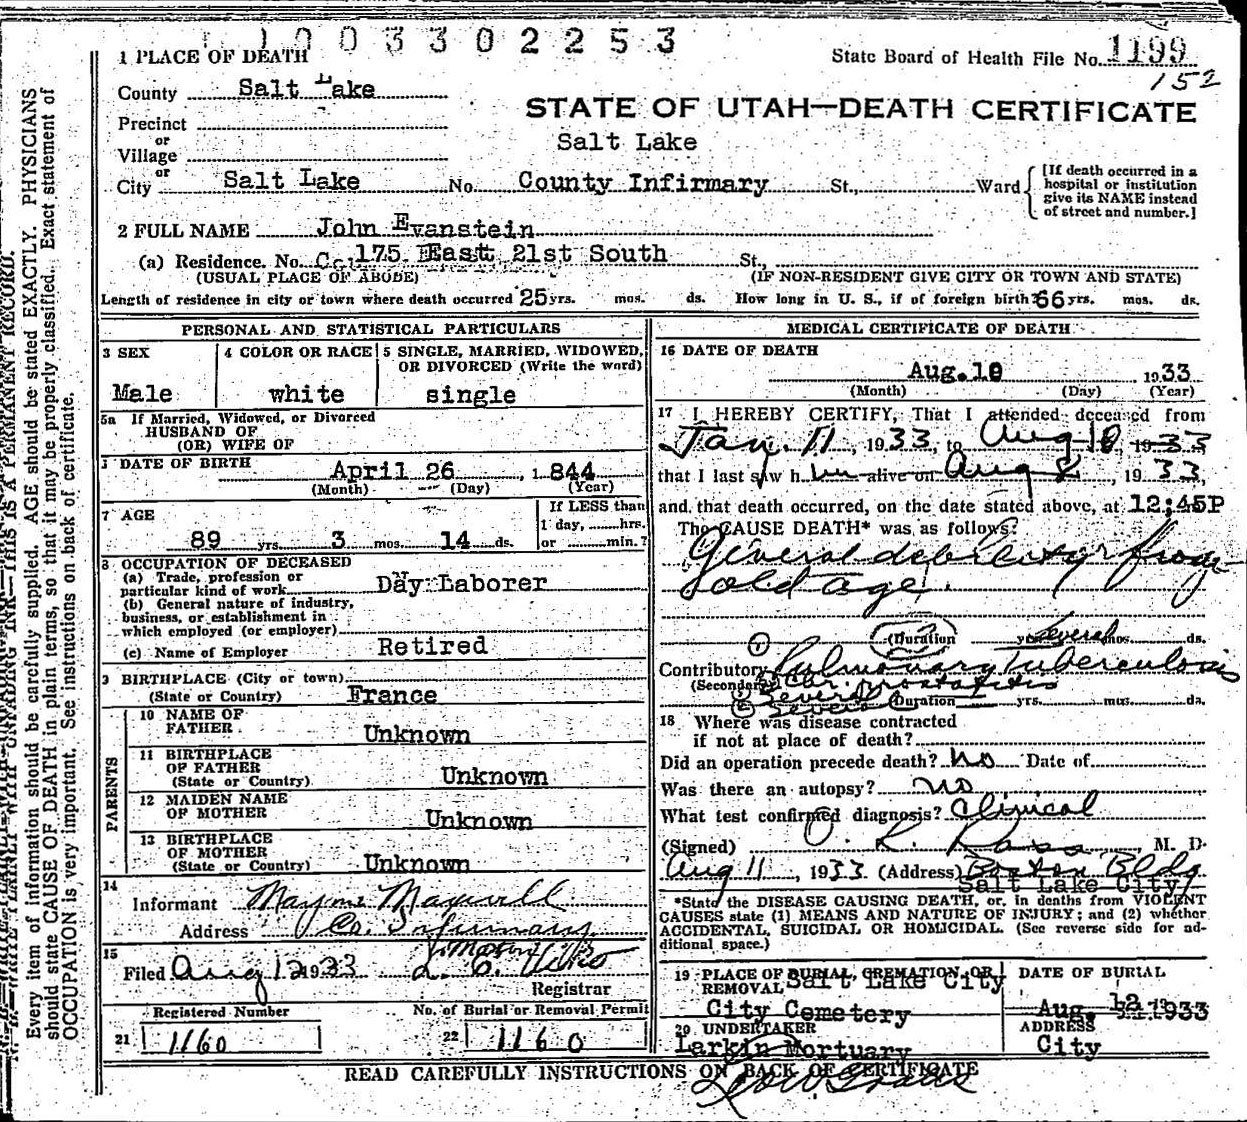 1003302253
1 PLACE OF DEATH
State Board of Health File No. 1199
152
County Salt Lake
STATE OF UTAH—DEATH CERTIFICATE
Precinct
or
Village
Salt Lake
or
City Salt Lake No. County Infirmary St., Ward
[If death occurred in a
hospital or institution
give its NAME instead
of street and number.]
2 FULL NAME John Evanstein
(a) Residence. No. 175 East 21st South St.,
(USUAL PLACE OF ABODE) (IF NON-RESIDENT GIVE CITY OR TOWN AND STATE)
Length of residence in city or town where death occurred 25 yrs. mos. ds. How long in U. S., if of foreign birth? 66 yrs. mos. ds.
PERSONAL AND STATISTICAL PARTICULARS
3 SEX
Male
4 COLOR OR RACE
white
5 SINGLE, MARRIED, WIDOWED,
OR DIVORCED (Write the word)
single
5a If Married, Widowed, or Divorced
HUSBAND OF
(OR) WIFE OF
DATE OF BIRTH
April 26, 1844
(Month) (Day) (Year)
7 AGE
89 yrs. 3 mos. 14 ds.
If LESS than
1 day, hrs.
or min.?
8 OCCUPATION OF DECEASED
(a) Trade, profession or
particular kind of work Day Laborer
(b) General nature of industry,
business, or establishment in
which employed (or employer)
(c) Name of Employer Retired
9 BIRTHPLACE (City or town)
(State or Country) France
PARENTS
10 NAME OF
FATHER Unknown
11 BIRTHPLACE
OF FATHER
(State or Country) Unknown
12 MAIDEN NAME
OF MOTHER Unknown
13 BIRTHPLACE
OF MOTHER
(State or Country) Unknown
14
Informant Mayme Maxwell
Address Co. Infirmary
15
Filed Aug 12 1933
Registrar
Registered Number
21 1160
No. of Burial or Removal Permit
22 1160
MEDICAL CERTIFICATE OF DEATH
16 DATE OF DEATH
Aug. 10 1933
(Month) (Day) (Year)
17 I HEREBY CERTIFY, That I attended deceased from
Jan. 11, 1933, to Aug 10 1933
that I last saw him alive on Aug 8, 1933,
and that death occurred, on the date stated above, at 12:45P
The CAUSE DEATH* was as follows:
General debility from
old age.
(Duration yrs. several mos. ds.
Contributory 1 Pulmonary Tuberculosis
(Secondary) 2 Chr. prostatitis
(Duration yrs. mos. ds.
18 Where was disease contracted
if not at place of death?
Did an operation precede death? no Date of
Was there an autopsy? no
What test confirmed diagnosis? Clinical
(Signed) M. D.
Aug 11, 1933 (Address) Boston Bldg
Salt Lake City
*State the DISEASE CAUSING DEATH, or, in deaths from VIOLENT
CAUSES state (1) MEANS AND NATURE OF INJURY; and (2) whether
ACCIDENTAL, SUICIDAL OR HOMICIDAL. (See reverse side for ad-
ditional space.)
19 PLACE OF BURIAL, CREMATION, OR
REMOVAL Salt Lake City
City Cemetery
DATE OF BURIAL
Aug. 12 1933
20 UNDERTAKER
Larkin Mortuary
ADDRESS
City
READ CAREFULLY INSTRUCTIONS ON BACK OF CERTIFICATE
Every item of information should be carefully supplied. AGE should be stated EXACTLY. PHYSICIANS
should state CAUSE OF DEATH in plain terms, so that it may be properly classified. Exact statement of
OCCUPATION is very important. See instructions on back of certificate.